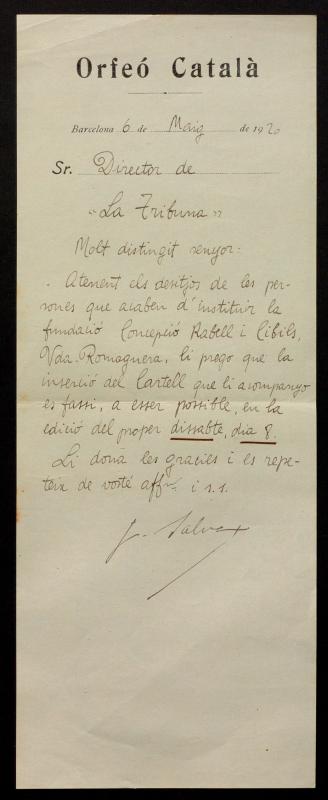 Orfeó Català
Barcelona 6 de Maig de 1920
Sr. Director de
"La Tribuna"
Molt distingit senyor:
Atenent els desitjos de les per-
sones que acaben d'instituir la
fundació Concepció Rabell i Cibils,
Vda. Romaguera, li prego que la
inserció del Cartell que li acompanyo
es fassi, a esser possible, en la
edició del proper dissabte, dia 8.
Li dona les gracies i es repe-
teix de vosté affm. i s.s.
J. Salvat